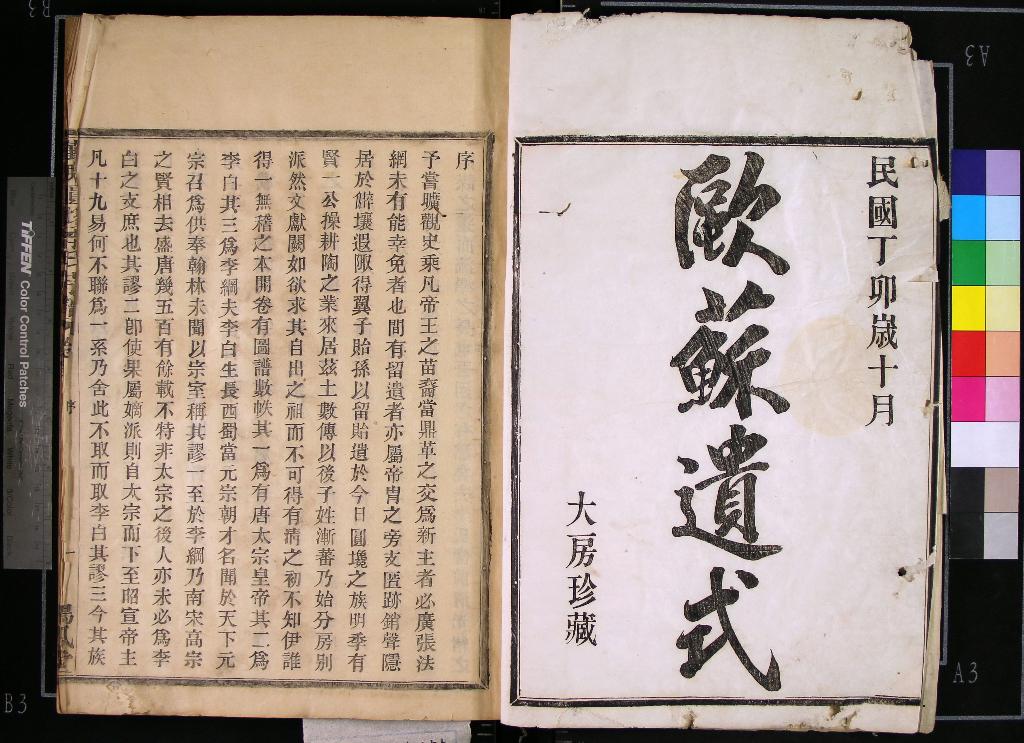 民國丁卯歲十月
歐蘇遺式
大房珍藏
序
予嘗曠觀史乘凡帝王之苗裔當鼎革之交爲新主者必廣張法
網未有能幸免者也間有留遺者亦屬帝胄之旁支匿跡銷聲隱
居於僻壤遐陬得翼子貽孫以留貽遺於今日圓墝之族明季有
賢一公操耕陶之業來居茲土數傳以後子姓漸蕃乃始分房別
派然文獻闕如欲求其自出之祖而不可得有清之初不知伊誰
得一無稽之本開卷有圖譜數帙其一爲有唐太宗皇帝其二爲
李白其三爲李綱夫李白生長西蜀當元宗朝才名聞於天下元
宗召爲供奉翰林未聞以宗室稱其謬一至於李綱乃南宋高宗
之賢相去盛唐幾五百有餘載不特非太宗之後人亦未必爲李
白之支庶也其謬二卽使果屬嫡派則自太宗而下下至昭宣帝主
凡十九易何不聯爲一系乃舍此不取而取李白其謬三今其族
序
一
TIFFEN Color Control Patches
A3
A3
B3